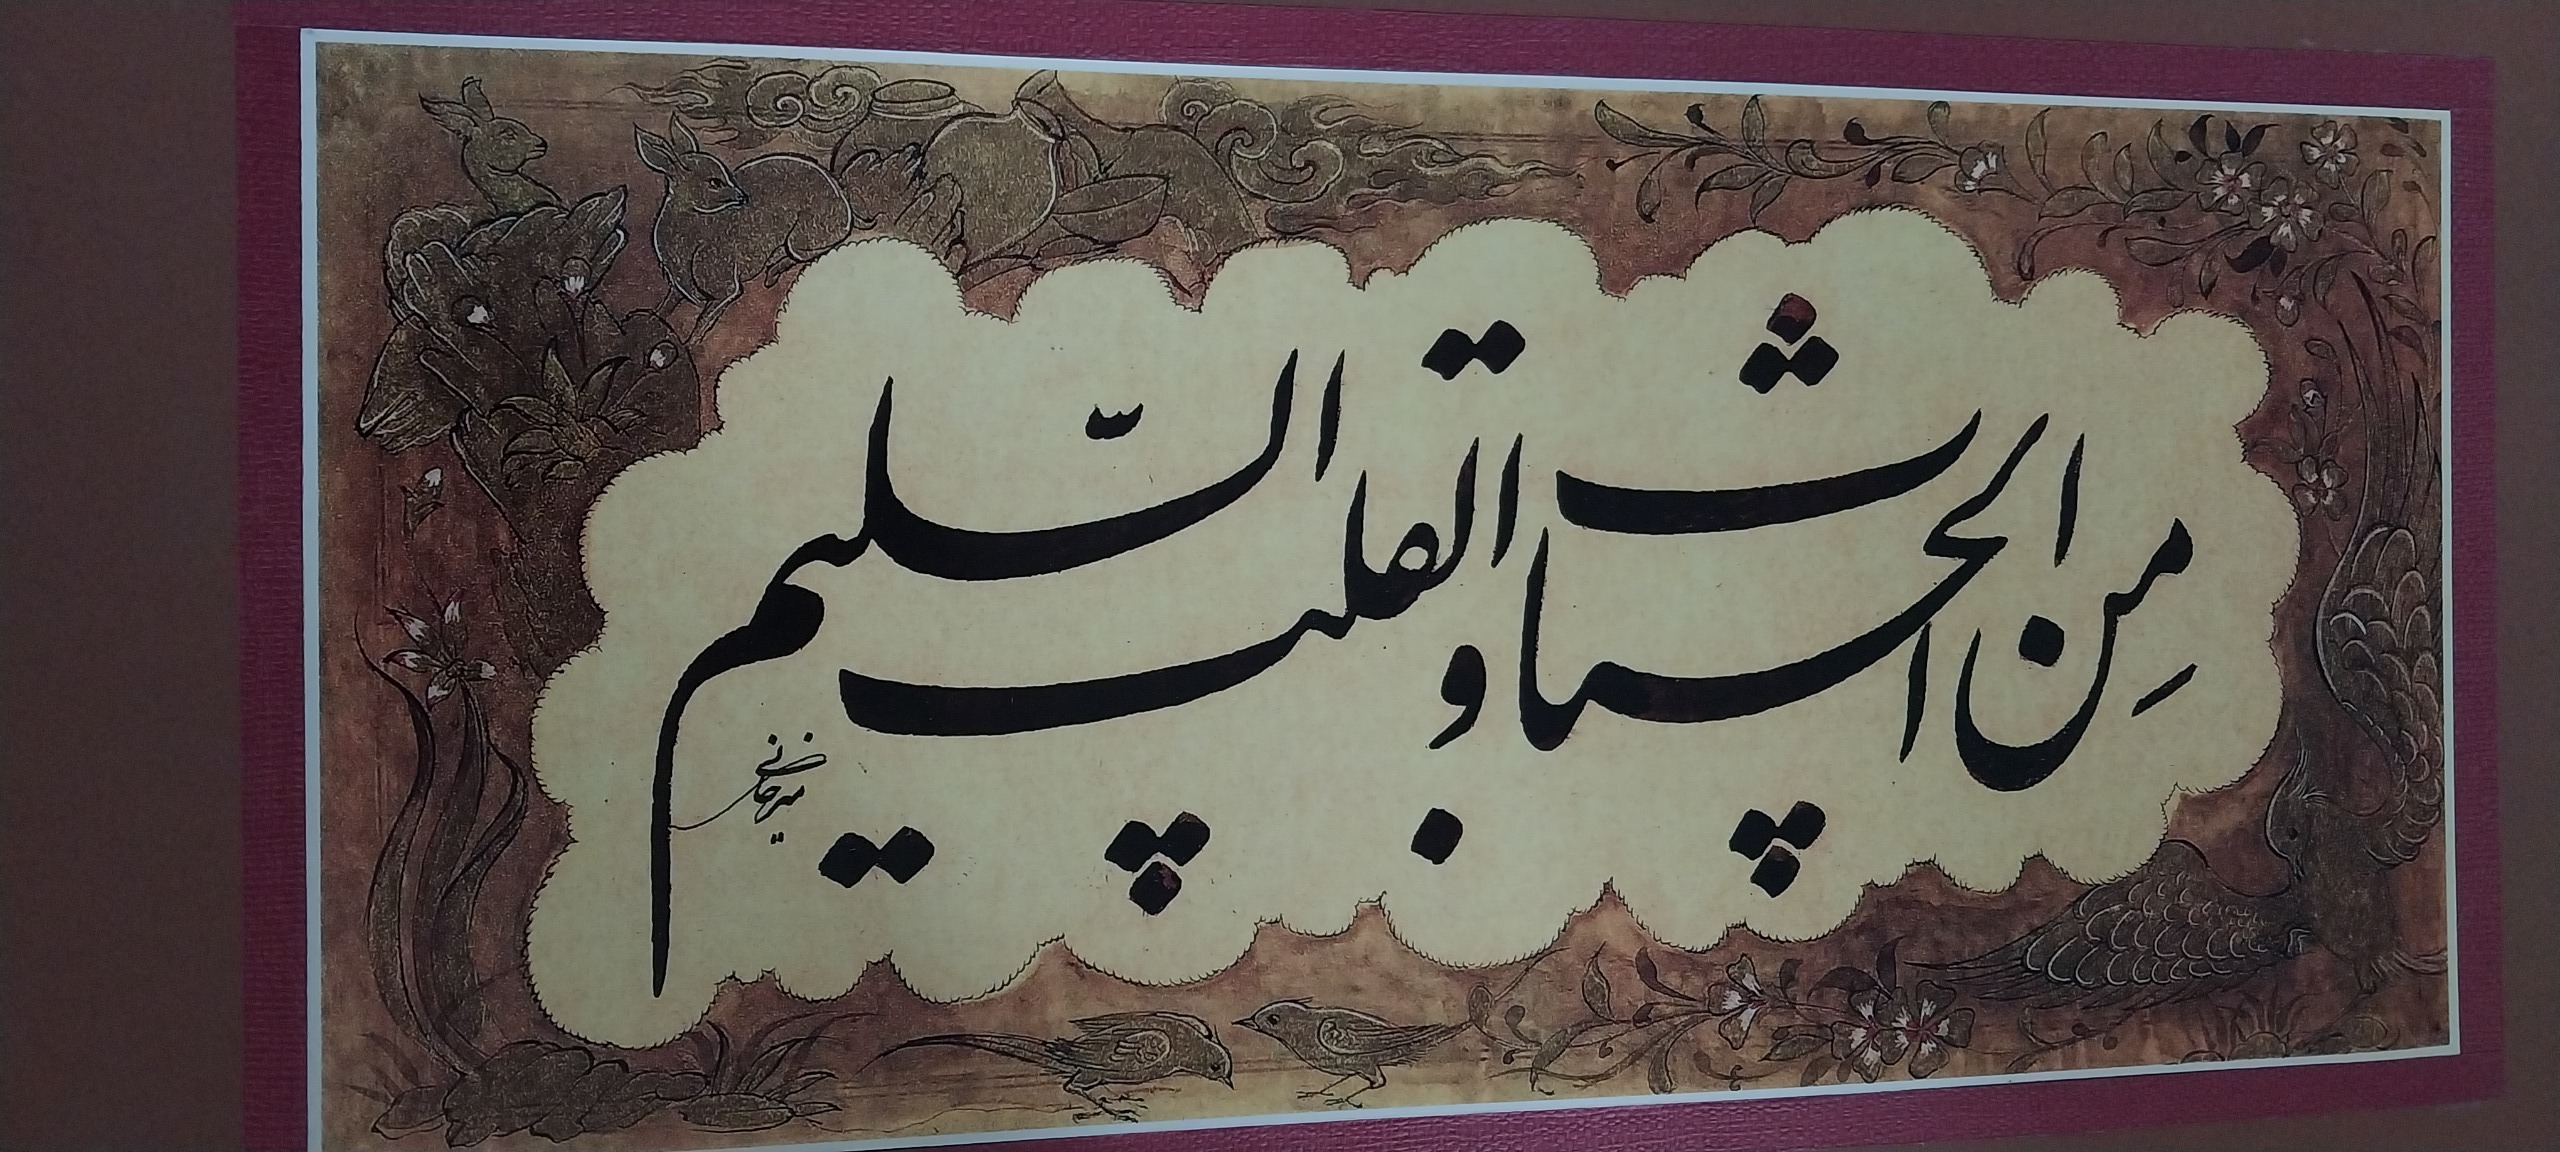 مِن الحسنات والقلب السّلیم
میرخانی